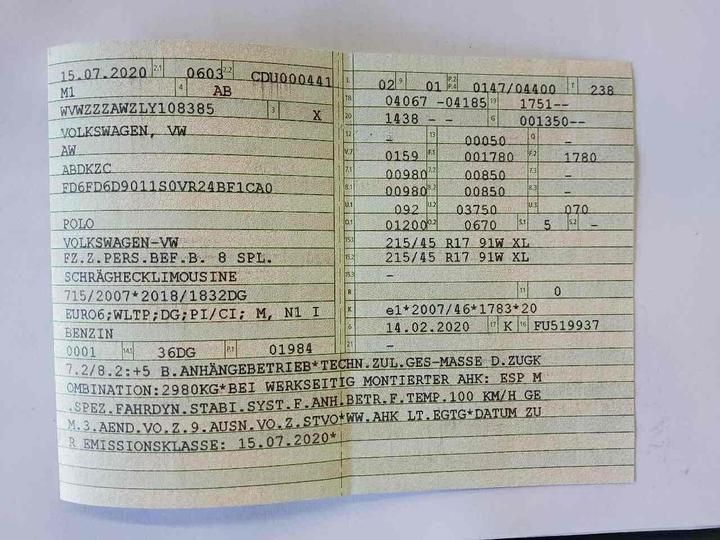 15.07.2020 2.1 0603 2.2 CDU000441
M1 4 AB
WVWZZZAWZLY108385 3 X
VOLKSWAGEN, VW
AW
ABDKZC
FD6FD6D9011S0VR24BF1CA0
POLO
VOLKSWAGEN-VW
FZ.Z.PERS.BEF.B. 8 SPL.
SCHRÄGHECKLIMOUSINE
715/2007*2018/1832DG
EURO6;WLTP;DG;PI/CI; M, N1 I
BENZIN
0001 14.1 36DG P.1 01984
L 02 9 01 P.2 P.4 0147/04400 T 238
18 04067 -04185 19 1751--
20 1438 - - G 001350--
12 - 13 00050 Q -
V.7 0159 F.1 001780 F.2 1780
7.1 00980 7.2 00850 7.3 -
8.1 00980 8.2 00850 8.3 -
U.1 092 U.2 03750 U.3 070
O.1 01200 O.2 0670 S.1 5 S.2 -
15.1 215/45 R17 91W XL
15.2 215/45 R17 91W XL
15.3 -
R 11 0
K e1*2007/46*1783*20
6 14.02.2020 17 K 16 FU519937
21 -
7.2/8.2:+5 B.ANHÄNGEBETRIEB*TECHN.ZUL.GES-MASSE D.ZUGK
OMBINATION:2980KG*BEI WERKSEITIG MONTIERTER AHK: ESP M
.SPEZ.FAHRDYN.STABI.SYST.F.ANH.BETR.F.TEMP.100 KM/H GE
M.3.AEND.VO.Z.9.AUSN.VO.Z.STVO*WW.AHK LT.EGTG*DATUM ZU
R EMISSIONSKLASSE: 15.07.2020*